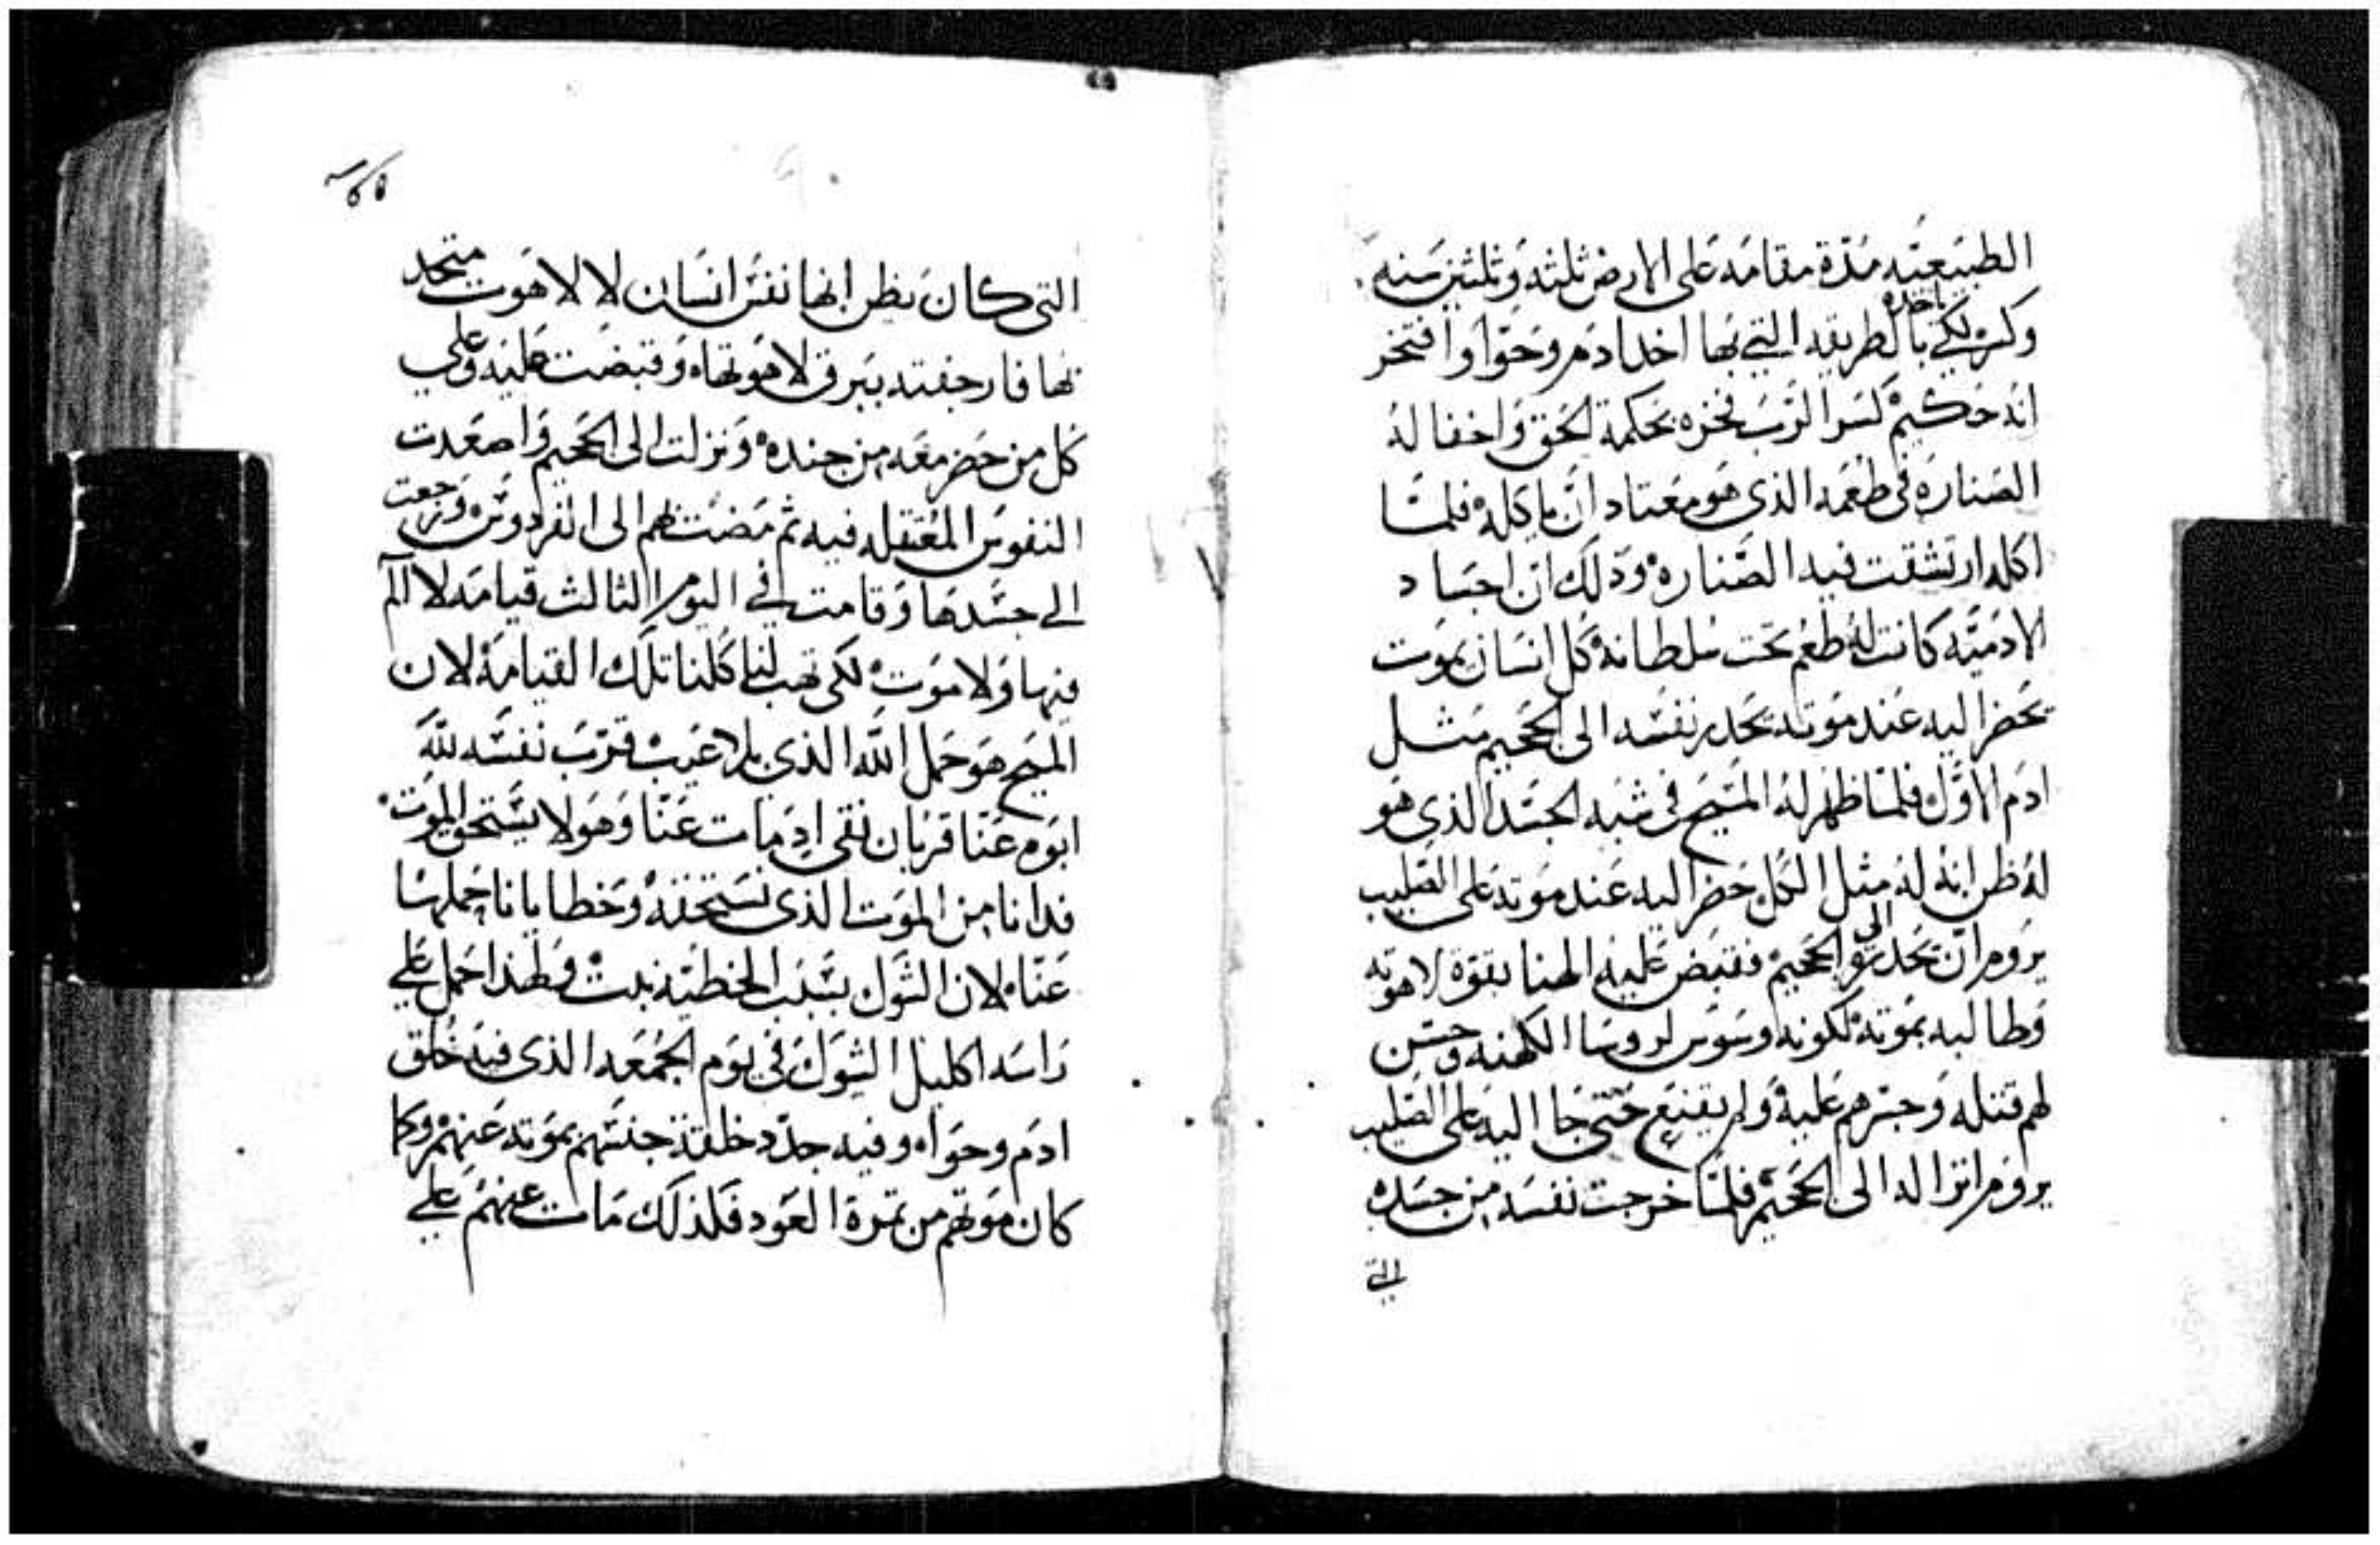 الطبيعيه مدة مقامه على الارض ثلثه وثلثين سنه
ولكن لكي ياخده بالطريقه التي بها اخد ادم وحوا وافتخر
انه حكيم كسر الرب فخره بحكمة الحق واخفا له
الصناره في طعمه الذي هو معتاد ان ياكله فلما
اكله ارتشقت فيه الصناره ودلك ان اجساد
الادميه كانت له طعم تحت سلطانه كل انسان يموت
يحضر اليه عند موته يحدر نفسه الى الجحيم مثل
ادم الاول فلما ظهر له المسيح في شبه الجسد الذي هو
له ظن انه له مثل الكل حضر اليه عند موته على الصليب
يروم ان يحدره الى الجحيم فقبض عليه الهنا بقوة لاهوته
وطالبه بموته لكونه وسوس لروسا الكهنه وحسن
لهم قتله وجسرهم عليه ولم يقنع حتى جا اليه على الصليب
يروم انزاله الى الجحيم فلما خرجت نفسه من جسده
التي
التي كان يظن انها نفس انسان لا لاهوت متحد
بها فارجفته ببرق لاهوتها وقبضت عليه وعلى
كل من حضر معه من جنده ونزلت الى الجحيم واصعدت
النفوس المعتقله فيه ثم مضت بهم الى الفردوس ورجعت
الى جسدها وقامت في اليوم الثالث قيامه لا الم
فيها ولا موت لكي تهب لنا كلنا تلك القيامة لان
المسيح هو حمل الله الذي بلا عيب قرب نفسه لله
ابوه عنا قربان نقي اد مات عنا وهو لا يستحق الموت
فدانا من الموت الذي نستحقه وخطايانا حملها
عنا لان الشوك بسبب الخطيه نبت ولهذا حمل على
راسه اكليل الشوك في يوم الجمعه الذي فيه خلق
ادم وحوا وفيه جدد خلقة جنسهم بموته عنهم وكما
كان موتهم من تمرة العود فلذلك مات عنهم على